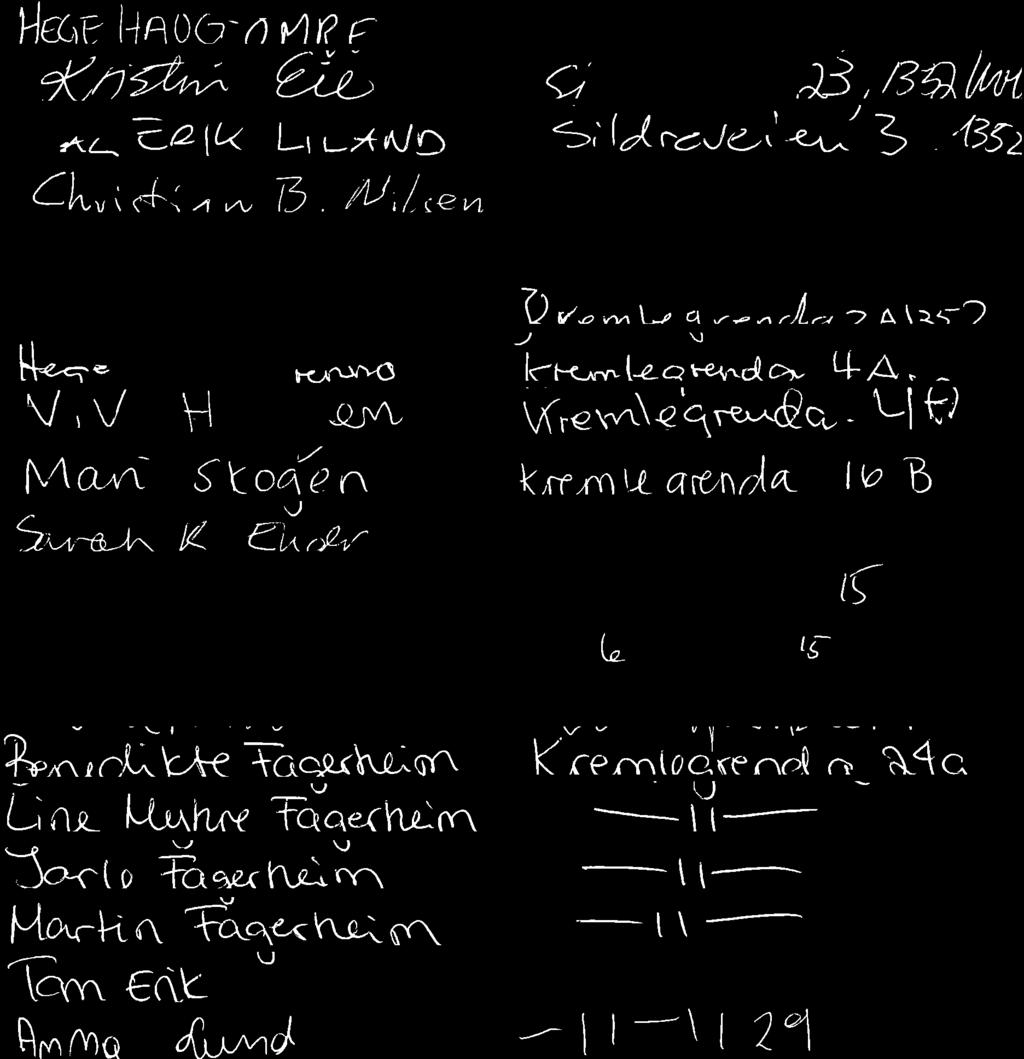 HEGE HAUG
Kristin Eie Si 23, 1352
ERIK LILAND Sildreveien 3. 1352
Christian B. Nilsen
Kremlegrenda
Hege Kremlegrenda 4A.
ViV H Kremlegrenda.
Mari Skogen Kremlegrenda 16 B
Sarah K
15
6 15
Benedikte Fagerheim Kremlegrenda 24a
Line Myhre Fagerheim —11—
Jarle Fagerheim —11—
Martin Fagerheim —11—
Tom Erik
Anna Lund —11—11 29